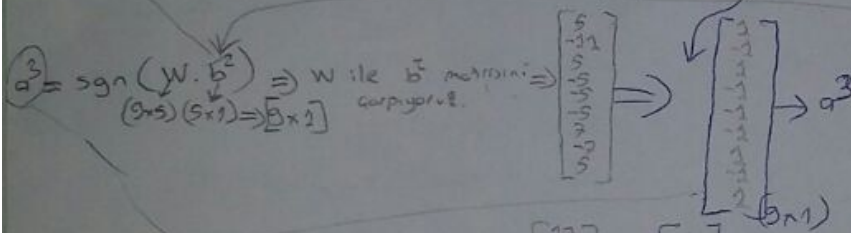 a³ = sgn (W. b²) => W ile b² matrisini =>
çarpıyoruz.
(9x5) (5x1) => [9x1]
5
-11
5
-5
-5
-5
7
-7
5
=>
1
-1
1
-1
-1
-1
1
-1
1
(9x1)
→ a³